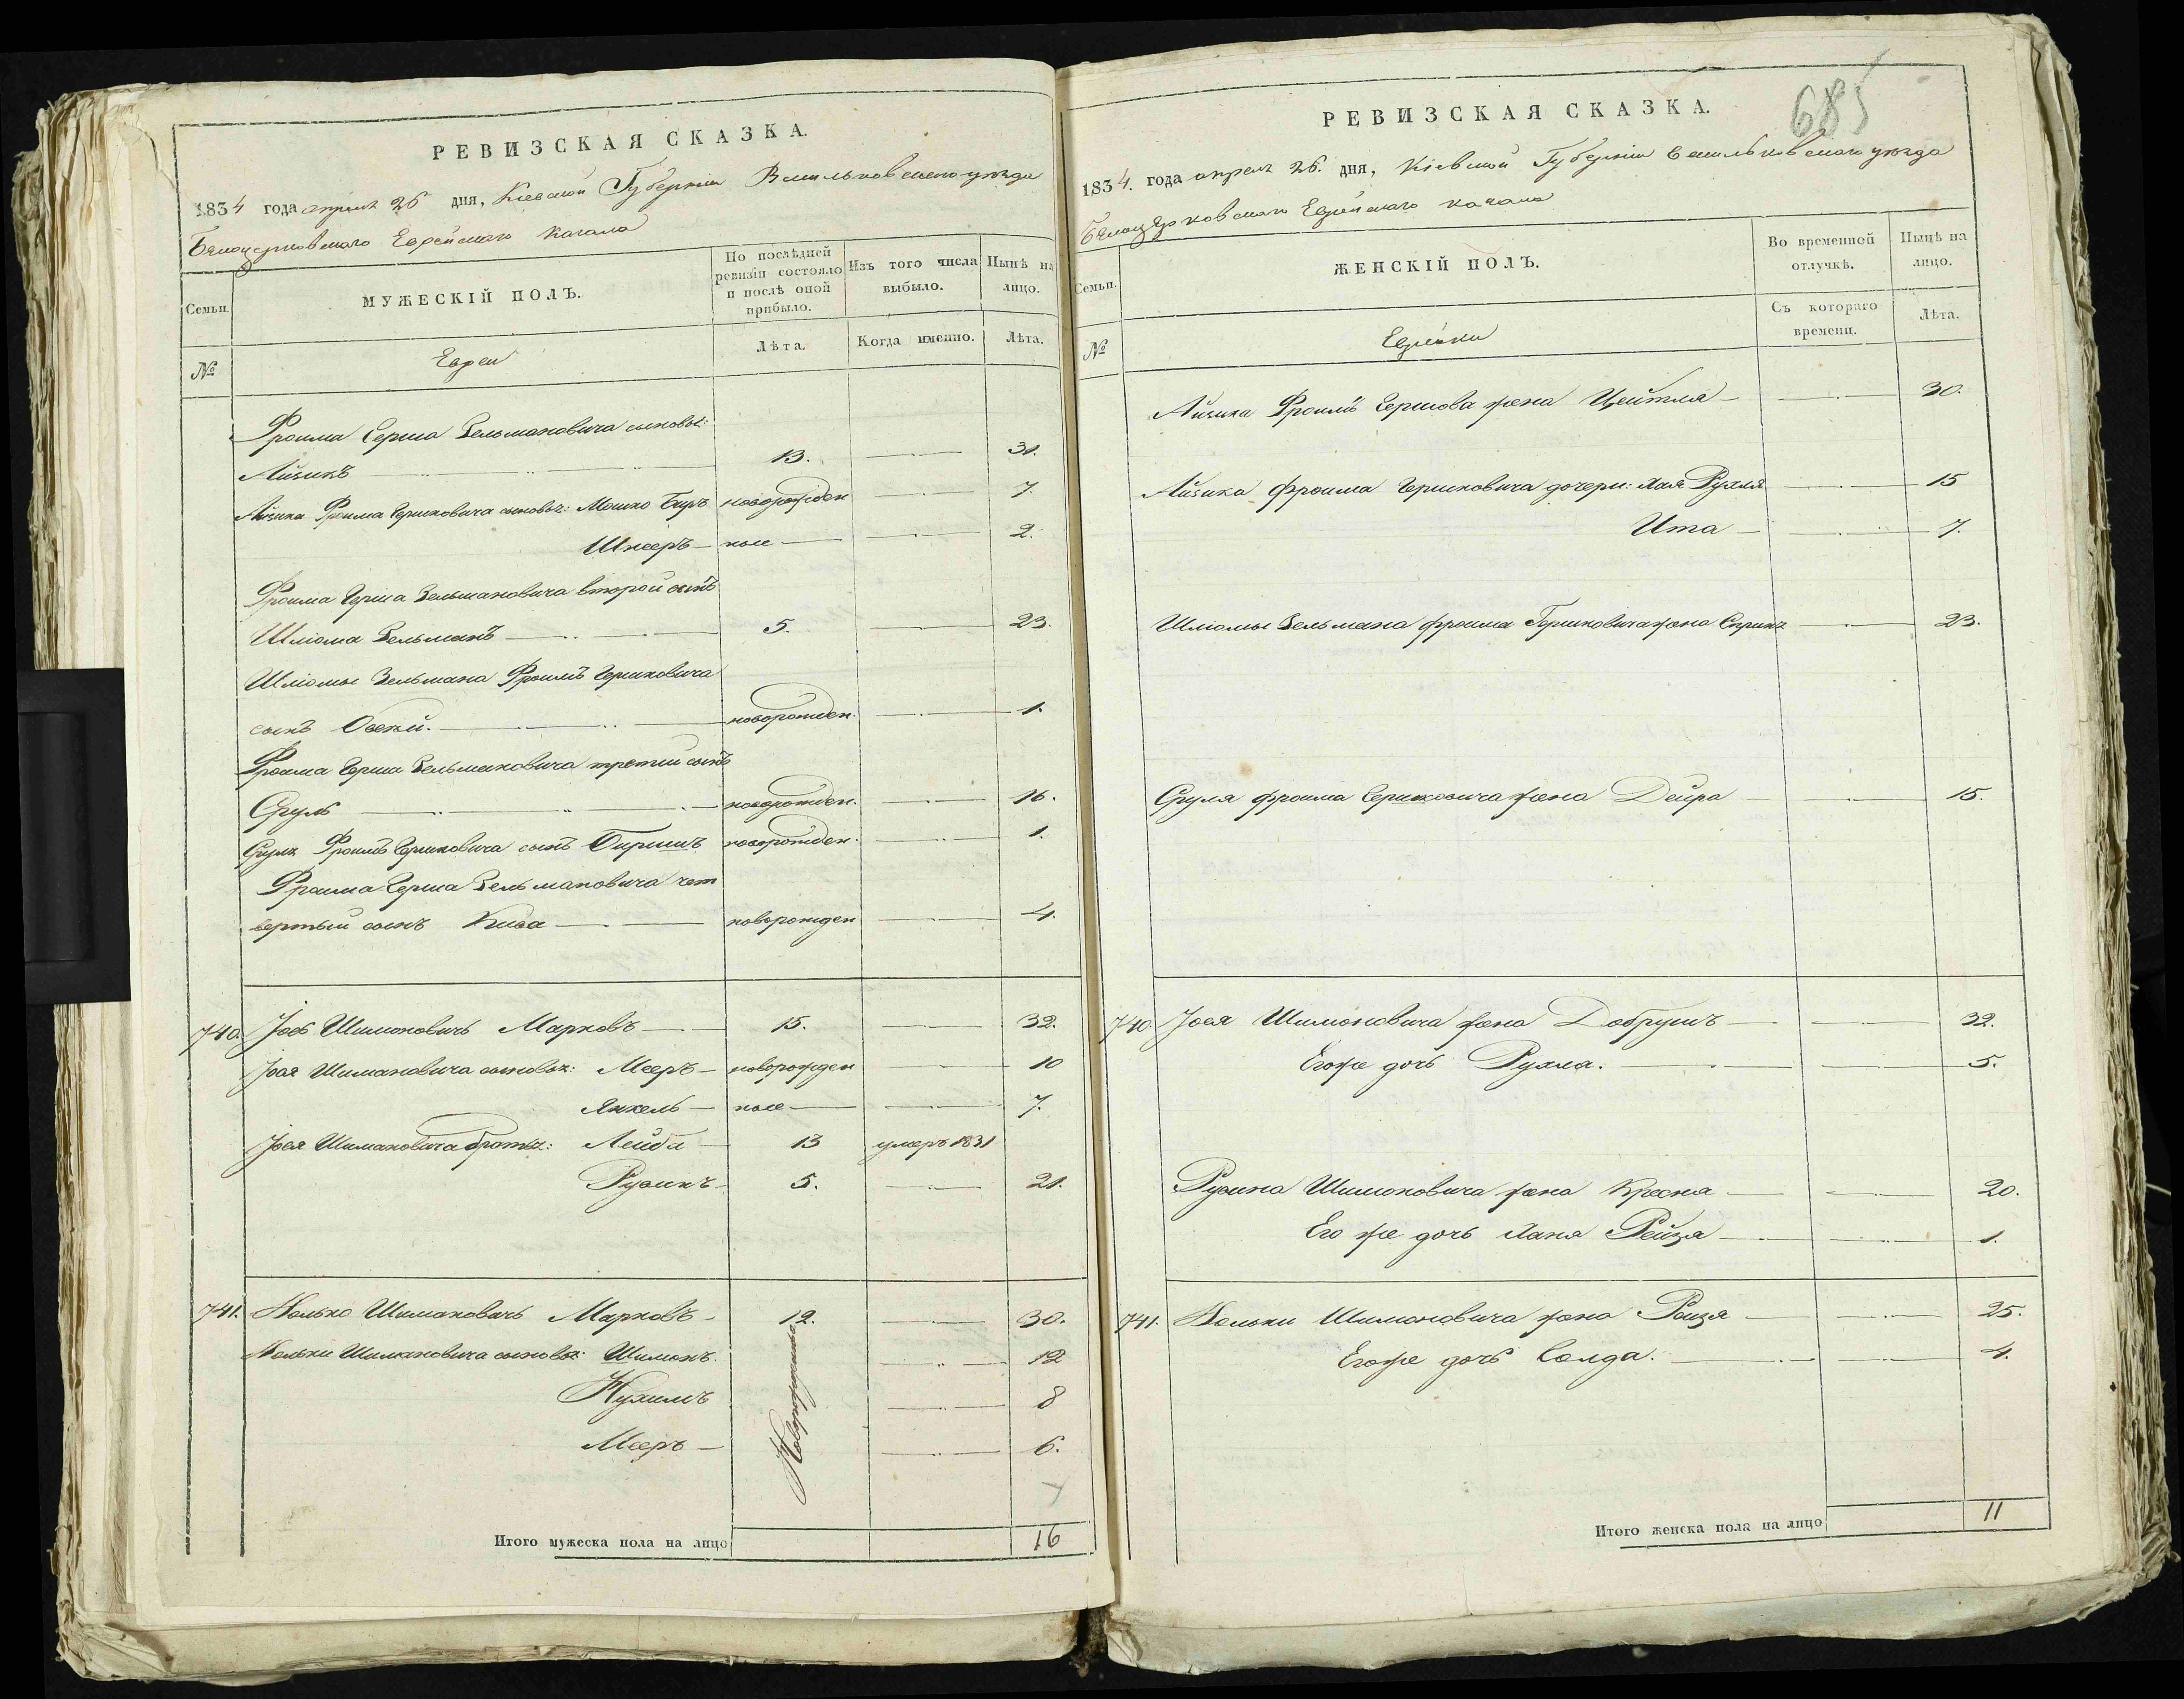 РЕВИЗСКАЯ СКАЗКА.
1834 года апреля 26 дня, Киевской Губернии Васильковского уезда
Белоцерковского Еврейскаго Кагала
Семьи.
МУЖЕСКІЙ ПОЛЪ.
По послѣдней ревизіи состояло и послѣ оной прибыло.
Изъ того числа выбыло.
Нынѣ на лицо.
№
Евреи
Лѣта.
Когда именно.
Лѣта.
Фроима Герша Зельмановича сыновья:
Айзикъ 13. 31.
Айзика Фроима Гершковича сыновья: Мошко Беръ новорожден 7.
Шнееръ ные 2.
Фроима Герша Зельмановича второй сынъ
Шліома Зельманъ 5. 23.
Шліомы Зельмана Фроимъ Гершковича
сынъ Овсей. новорожден. 1.
Фроима Герша Зельмановича третій сынъ
Сруль новорожден. 16.
Сруля Фроимъ Гершковича сынъ новорожден. 1.
Фроима Герша Зельмановича чет
вертый сынъ Кива новорожден 4.
740. Іось Шимоновичь Марковъ 15. 32.
Іося Шимановича сыновья: Мееръ новорожден 10
Янкель ные 7.
Іося Шимановича братья: Лейба 13 умеръ 1831
Рувинъ 5. 21.
741. Шимановичь Марковъ 12. 30.
Шимановича сыновья: Шимонъ. Новорожденные 12
Нухимъ 8
Мееръ 6.
Итого мужеска пола на лицо 16
685
РЕВИЗСКАЯ СКАЗКА.
1834. года апреля 26. дня, Кіевской Губерніи Васильковскаго уезда
Белоцерковскаго Еврейскаго кагала
Семьи.
ЖЕНСКІЙ ПОЛЪ.
Во временной отлучкѣ.
Нынѣ на лицо.
№
Еврейки
Съ котораго времени.
Лѣта.
Айзика Фроимъ Гершова жена Цейтля 30.
Айзика Фроима Гершковича дочери: Хая Рухля 15
Ита 7.
Шліомы Зельмана Фроима Гершковича жена 23.
Сруля Фроима Гершковича жена Двйра 15.
740. Іося Шимоновича жена Добрушъ 32.
Егоже дочь Рухля. 5.
Рувина Шимоновича жена Кресня 20.
Его же дочь Ханя Рейзя 1.
741. Шимановича жена Роизя 25.
Егоже дочь Голда. 4.
Итого женска пола на лицо 11